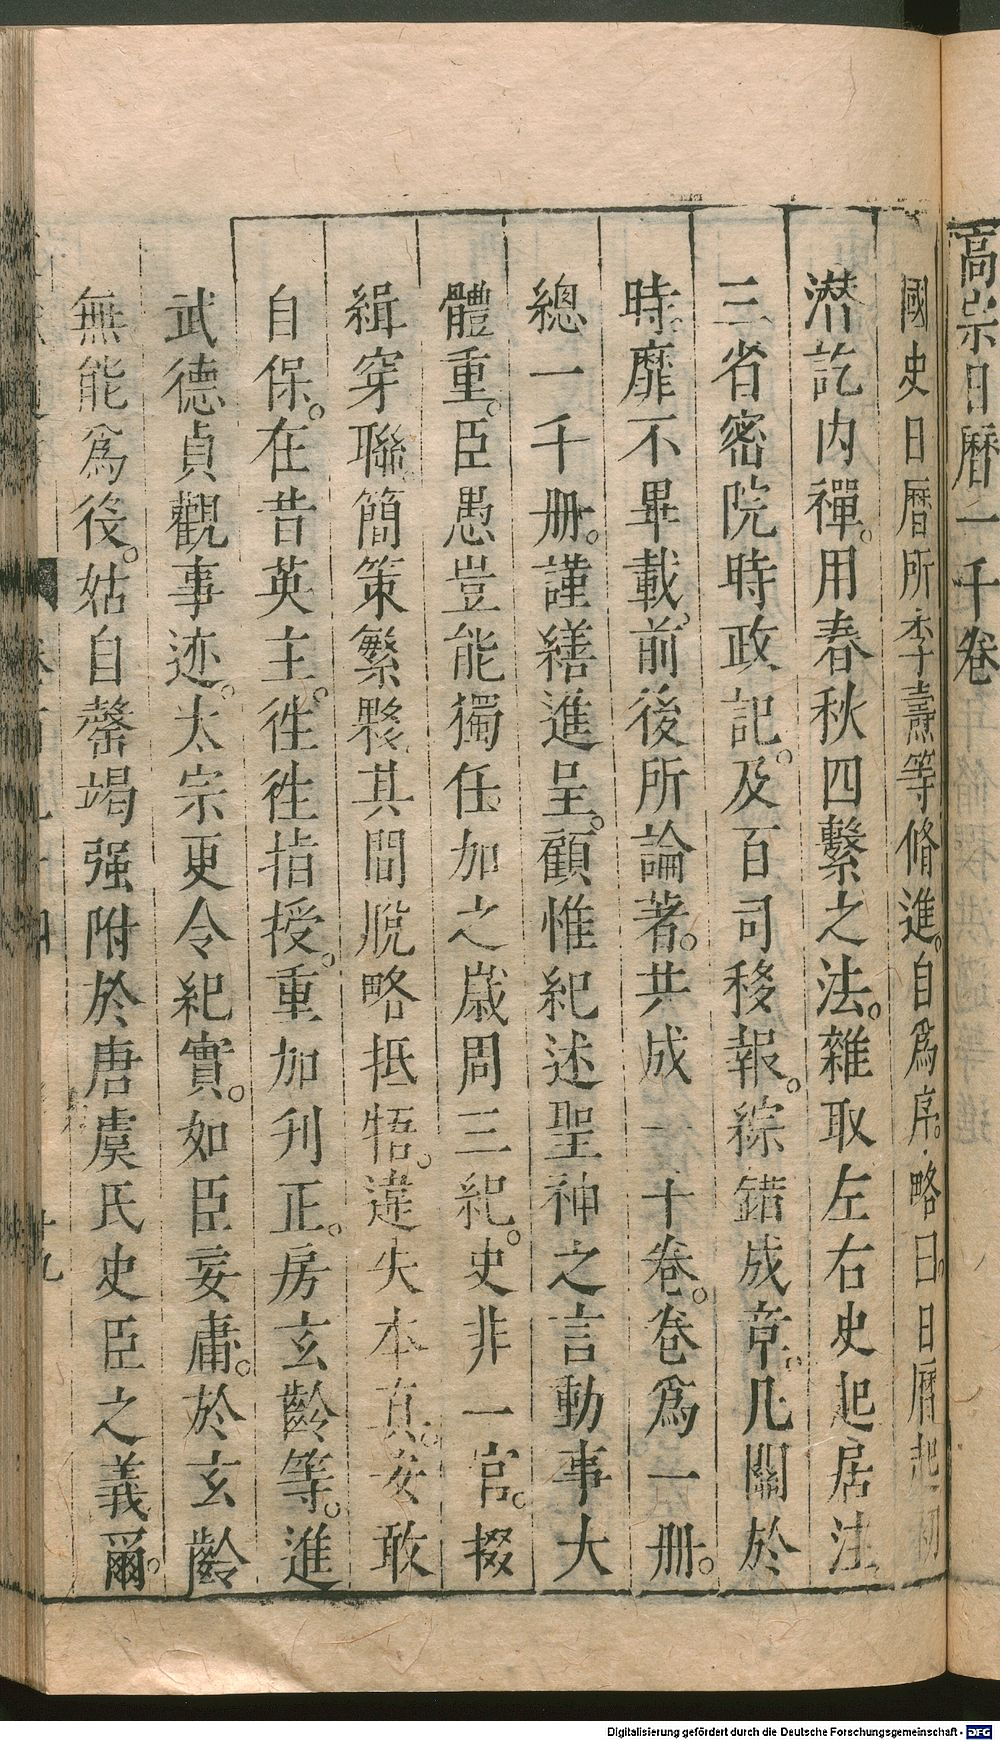 高宗日曆一千卷
國史日曆所李燾等脩進。自爲序。略曰。日曆起初
潛訖内禪。用春秋四繫之法。雜取左右史起居注
三省密院時政記。及百司移報。綜錯成章。凡關於
時。靡不畢載。前後所論著。共成一十卷。卷爲一册。
總一千册。謹繕進呈。顧惟紀述聖神之言動事大
體重。臣愚豈能獨任。加之歲周三紀。史非一官。掇
緝穿聯。簡策繁夥。其間脫略抵牾。違失本真。安敢
自保。在昔英主。徃徃指授。重加刋正。房玄齡等。進
武德貞觀事迹。太宗更令紀實。如臣妄庸。於玄齡
無能爲役。姑自罄竭强附於唐虞氏史臣之義爾。
Digitalisierung gefördert durch die Deutsche Forschungsgemeinschaft - DFG